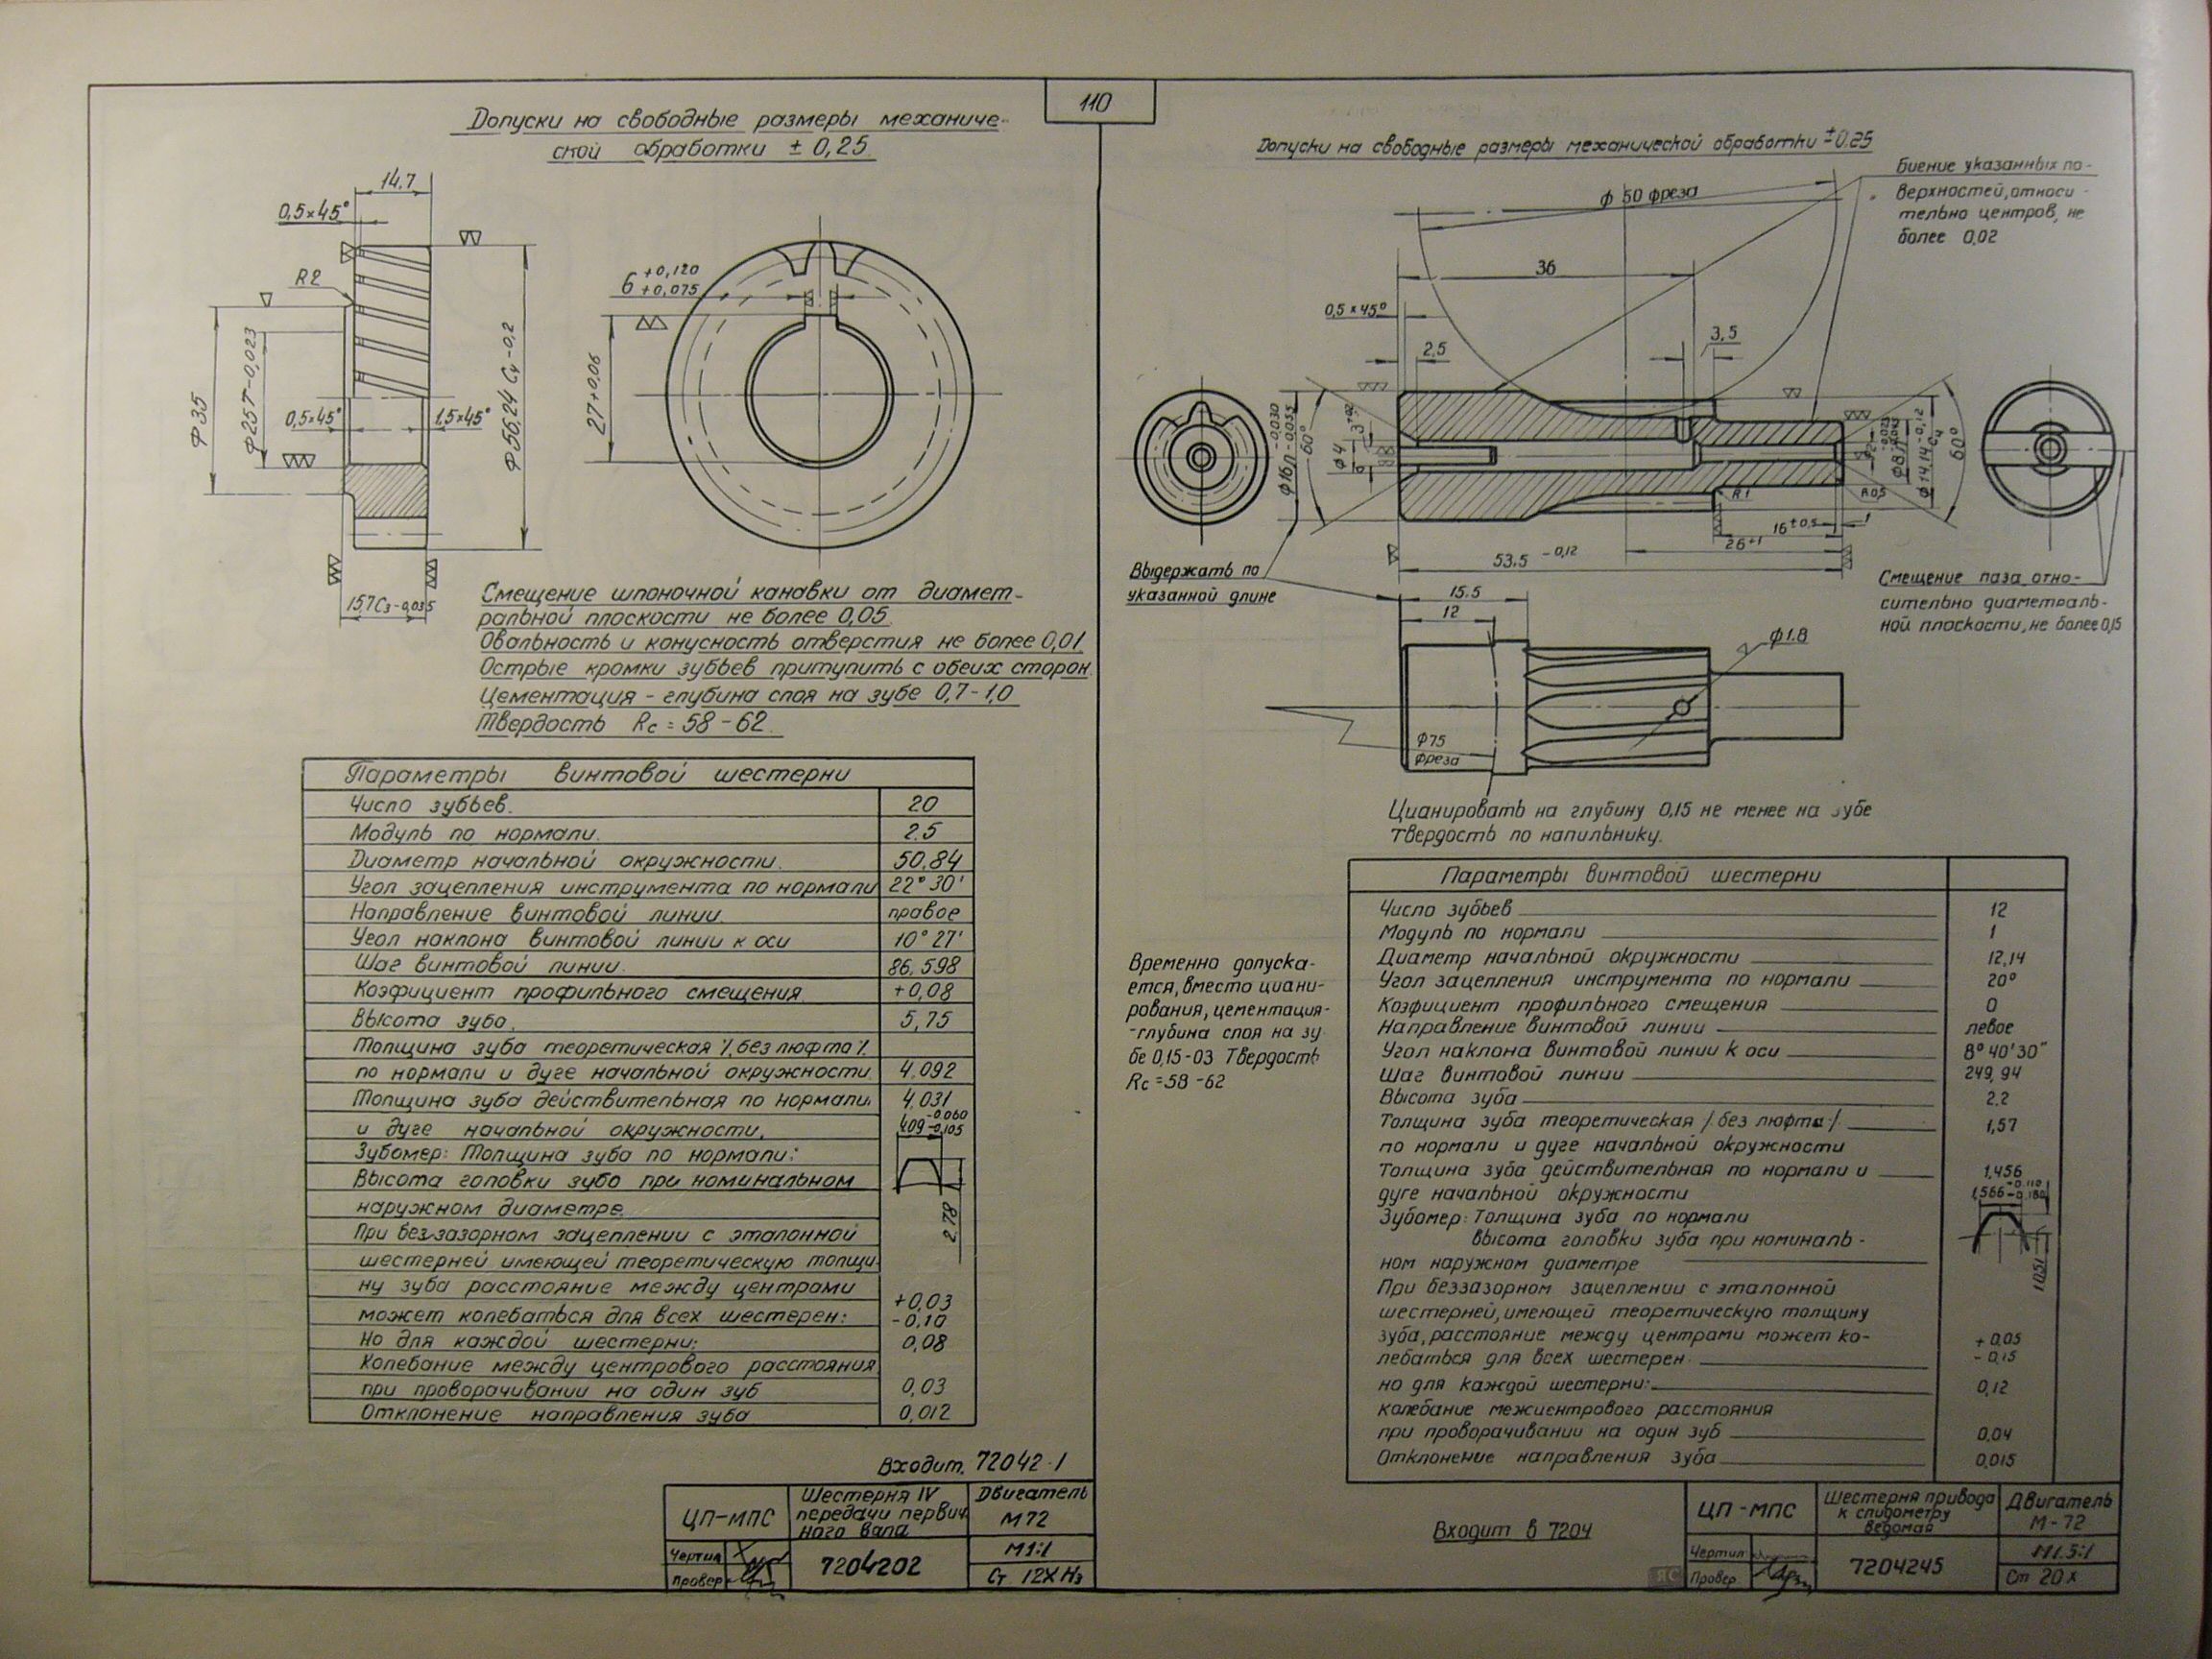 110
Допуски на свободные размеры механиче-
ской обработки ± 0,25.
14.7
0,5×45°
R2
Ф35
Ф25Г-0,023
0,5×45°
1,5×45°
Ф56,24 С4-0,2
15,7С3-0,035
6 +0,120 +0,075
27+0,06
Смещение шпоночной канавки от диамет-
ральной плоскости не более 0,05.
Овальность и конусность отверстия не более 0,01
Острые кромки зубьев притупить с обеих сторон
Цементация - глубина слоя на зубе 0,7-1,0
Твердость Rc = 58-62.
Параметры винтовой шестерни
Число зубьев. 20
Модуль по нормали. 2.5
Диаметр начальной окружности. 50,84
Угол зацепления инструмента по нормали 22° 30'
Направление винтовой линии. правое
Угол наклона винтовой линии к оси 10° 27'
Шаг винтовой линии. 86,598
Коэфициент профильного смещения +0,08
Высота зуба. 5,75
Толщина зуба теоретическая /. без люфта /.
по нормали и дуге начальной окружности. 4,092
Толщина зуба действительная по нормали 4,031
и дуге начальной окружности. 4.09 -0.060 -0,105
Зубомер: Толщина зуба по нормали:
Высота головки зуба при номинальном
наружном диаметре. 2,78
При беззазорном зацеплении с эталонной
шестерней имеющей теоретическую толщи-
ну зуба расстояние между центрами
может колебаться для всех шестерен: +0,03 -0,10
Но для каждой шестерни: 0,08
Колебание между центрового расстояния
при проворачивании на один зуб 0,03
Отклонение направления зуба 0,012
Входит. 72042-1
ЦП-МПС
Шестерня IV
передачи первич
ного вала
Двигатель
М72
Чертил
Провер.
7204202
М1:1
Ст. 12ХН3
Допуски на свободные размеры механической обработки ±0.25
Биение указанных по-
верхностей, относи-
тельно центров, не
более 0,02
Ф 50 фреза
36
0,5×45°
2,5
3,5
60°
Ф4
3+0,2
60°
R1
R0,5
16±0,5
1
26+1
53,5 -0,12
Выдержать по
указанной длине
Смещение паза отно-
сительно диаметраль-
ной плоскости, не более 0,15
15.5
12
Ф1.8
Ф75
фреза
Цианировать на глубину 0,15 не менее на зубе
Твердость по напильнику.
Временно допуска-
ется, вместо циани-
рования, цементация-
-глубина слоя на зу-
бе 0,15-03 Твердость
Rc = 58-62
Параметры винтовой шестерни
Число зубьев 12
Модуль по нормали 1
Диаметр начальной окружности 12,14
Угол зацепления инструмента по нормали 20°
Коэфициент профильного смещения 0
Направление винтовой линии левое
Угол наклона винтовой линии к оси 8° 40' 30"
Шаг винтовой линии 249,94
Высота зуба 2.2
Толщина зуба теоретическая /. без люфта /. 1,57
по нормали и дуге начальной окружности
Толщина зуба действительная по нормали и 1,456
дуге начальной окружности 1,566 -0.110 -0,180
Зубомер: Толщина зуба по нормали
Высота головки зуба при номиналь-
ном наружном диаметре 1,051
При беззазорном зацеплении с эталонной
шестерней, имеющей теоретическую толщину
зуба, расстояние между центрами может ко- +0,05
лебаться для всех шестерен: -0,15
но для каждой шестерни: 0,12
колебание межцентрового расстояния
при проворачивании на один зуб 0,04
Отклонение направления зуба 0,015
Входит в 7204
ЦП-МПС
Шестерня привода
к спидометру
ведомая
Двигатель
М-72
Чертил
Провер
7204245
М1.5:1
Ст 20Х
ЯС